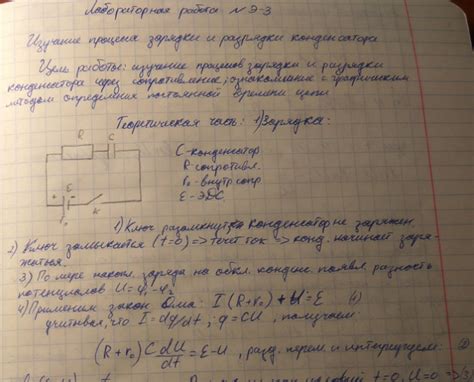 Лабораторная работа № Э-3
Изучение процесса зарядки и разрядки конденсатора
Цель работы: изучение процессов зарядки и разрядки
конденсатора через сопротивление; ознакомление с графическим
методом определения постоянной времени цепи
Теоретическая часть: 1) Зарядка:
R C
C-конденсатор
R-сопротивл.
r₀-внутр сопр.
ε-ЭДС
+ ε -
r₀ K
1) Ключ разомкнут => конденсатор не заряжен
2) Ключ замыкается (t=0) => течет ток => конд. начинает заря-
жаться.
3) По мере накопл. заряда на обкл. конденс появл. разность
потенциалов U=φ₁-φ₂
4) Применим закон Ома: I(R+r₀)+U=ε (1)
учитывая, что I=dq/dt; q=CU, получаем:
(R+r₀) C dU/dt = ε-U, разд. перем и интегрируем: (2)
t=0, U=0 =>